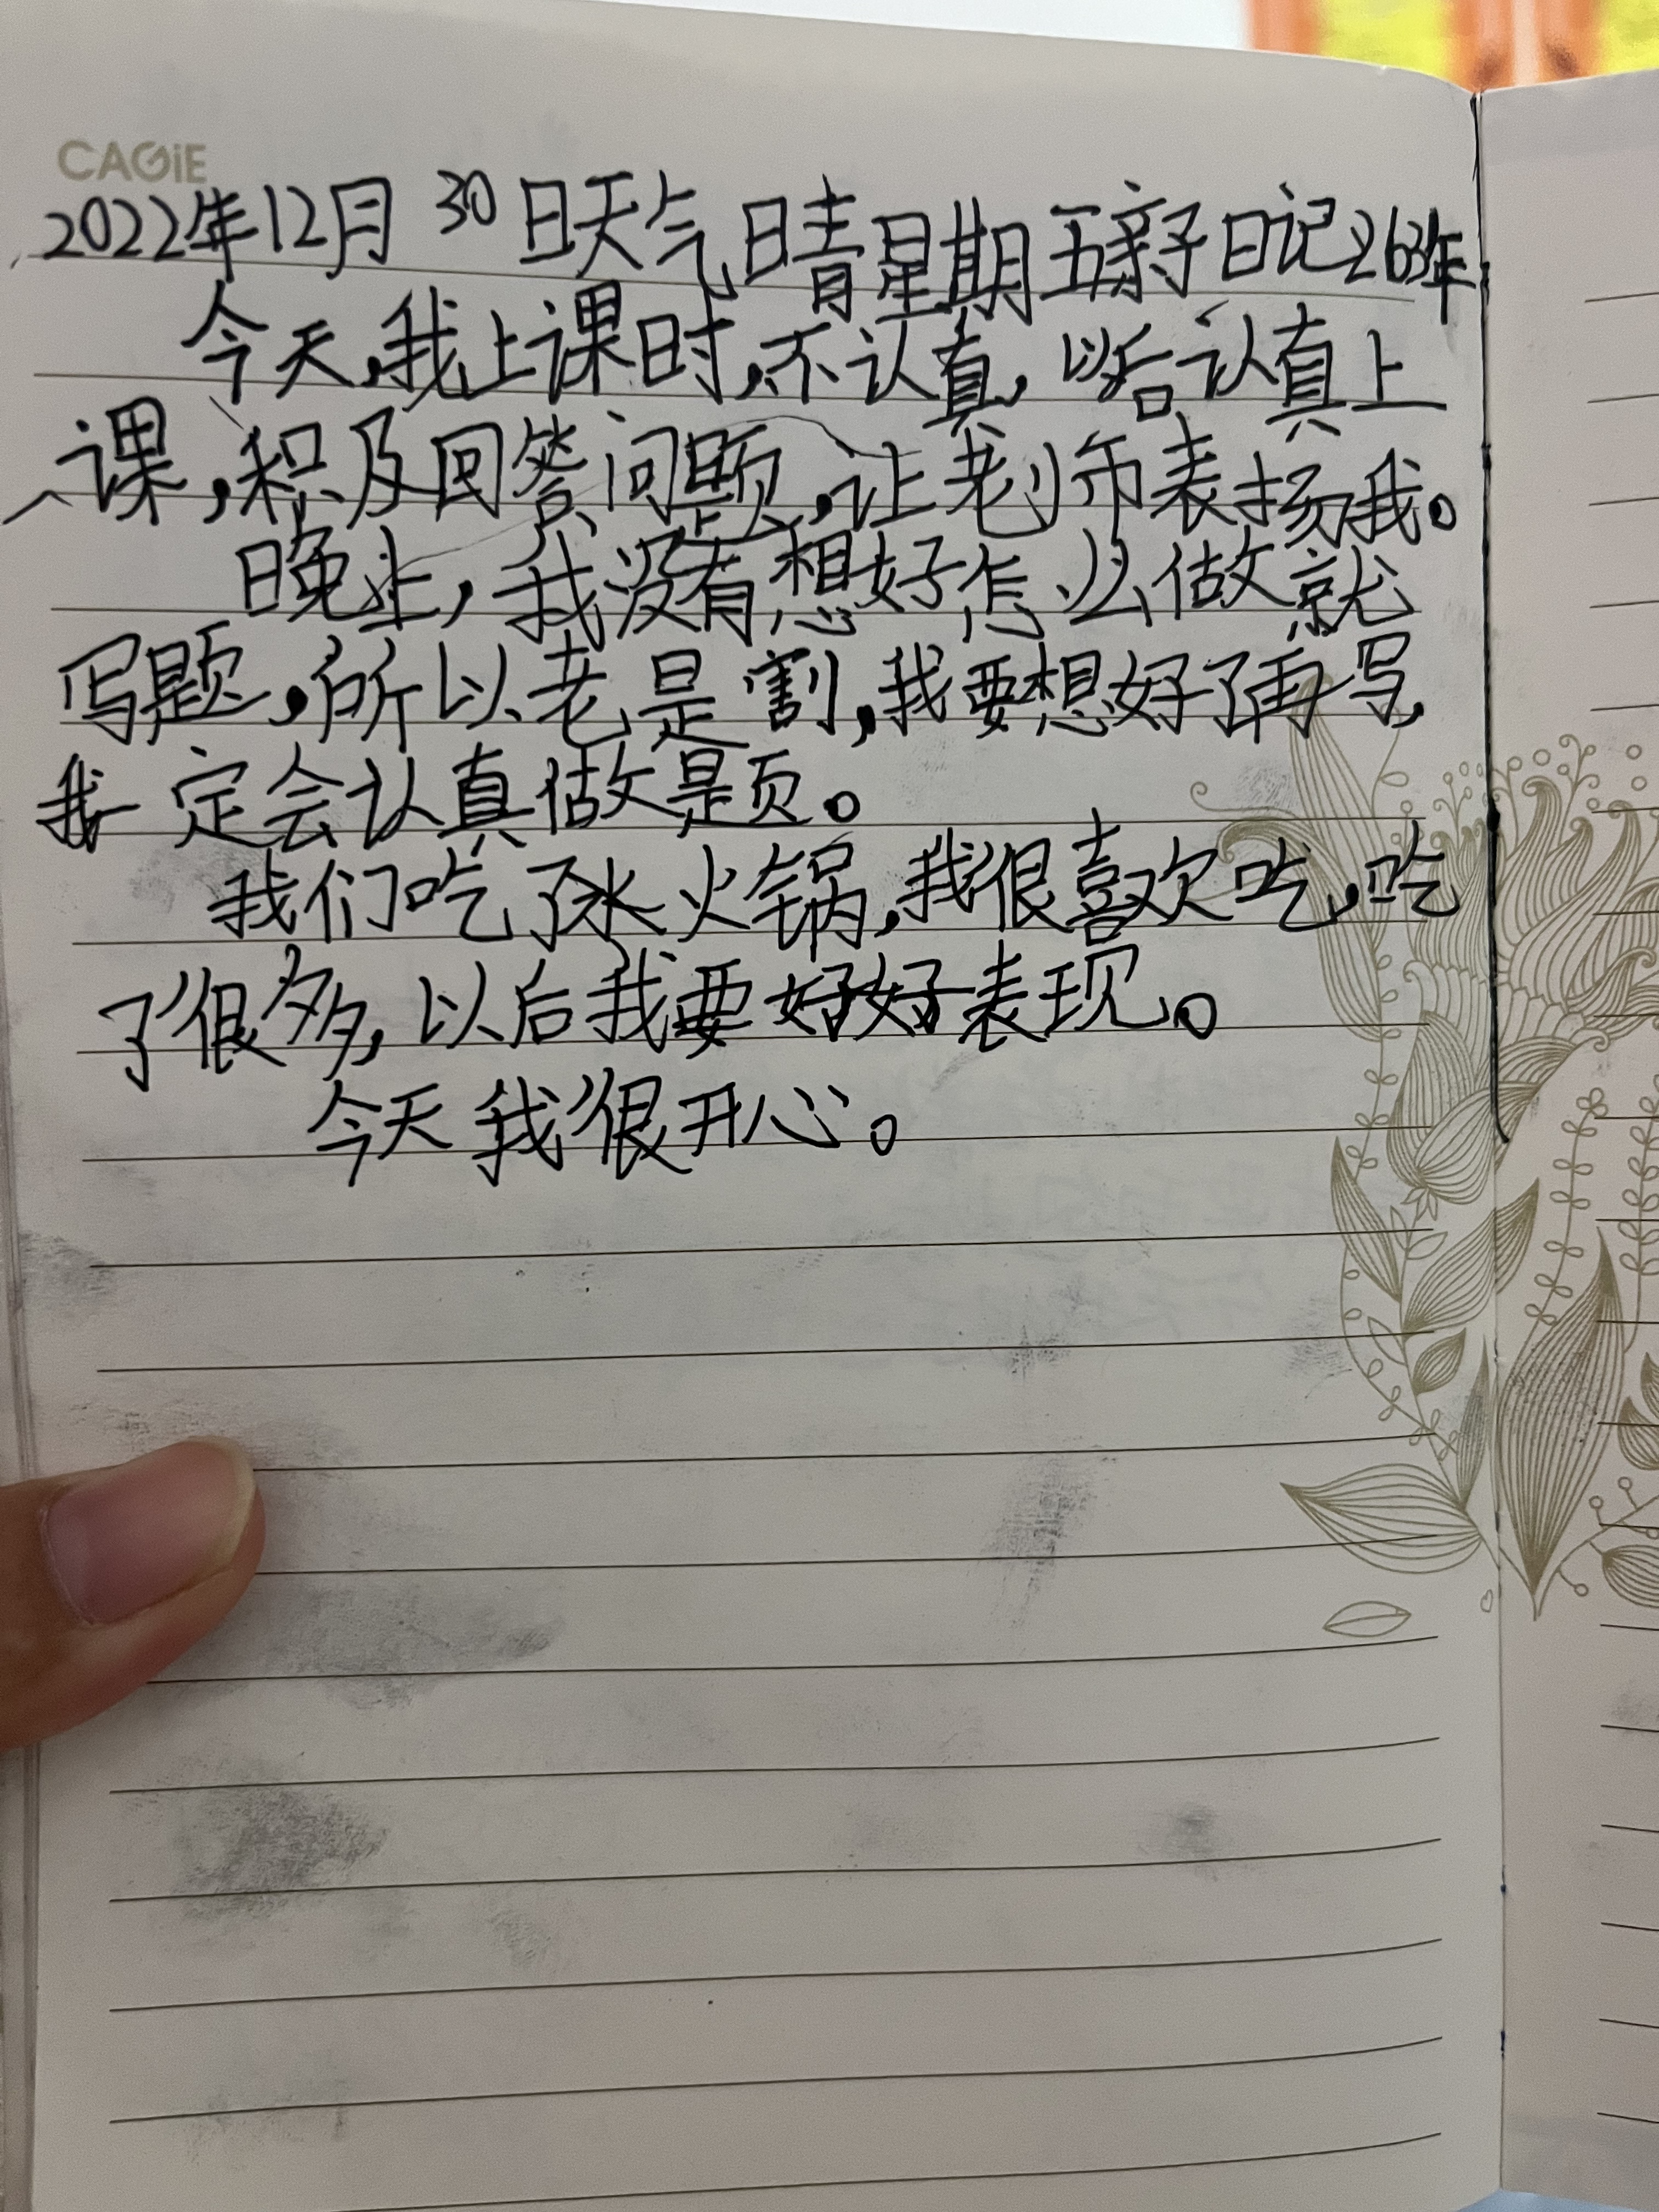 CAGiE
2022年12月30日天气晴星期五亲子日记263年
今天,我上课时,不认真,以后认真上
课,积及回答问题,让老师表扬我。
晚上,我没有想好怎么做就
写题,所以老是割,我要想好了再写,
我一定会认真做是页。
我们吃了水火锅,我很喜欢吃,吃
了很多,以后我要好好表现。
今天我很开心。